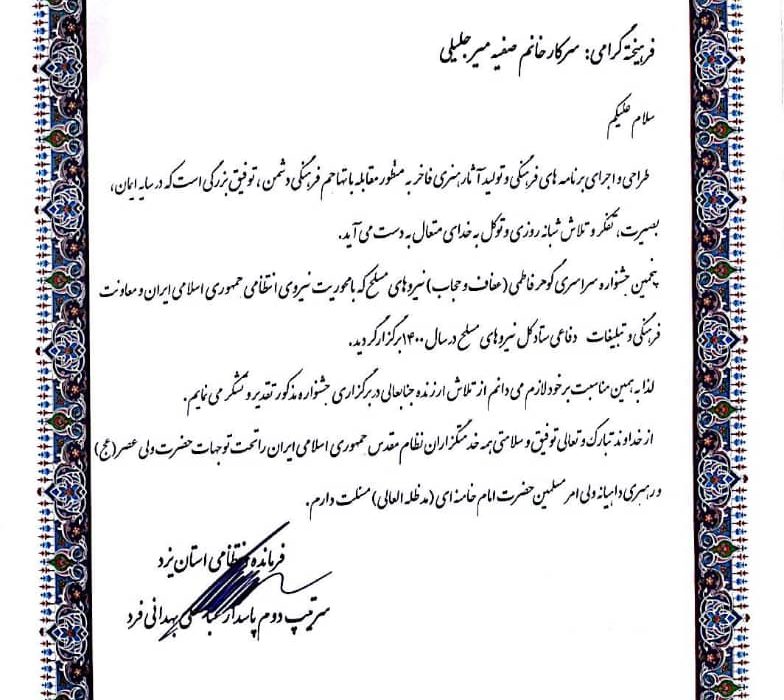 فرهیخته گرامی: سرکار خانم صفیه میرجلیلی
سلام علیکم
طراحی و اجرای برنامه های فرهنگی و تولید آثار هنری فاخر به منظور مقابله با تهاجم فرهنگی دشمن ، توفیق بزرگی است که در سایه ایمان،
بصیرت، تفکر و تلاش شبانه روزی و توکل به خدای متعال به دست می آید.
پنجمین جشنواره سراسری گوهر فاطمی (عفاف و حجاب) نیروهای مسلح که با محوریت نیروی انتظامی جمهوری اسلامی ایران و معاونت
فرهنگی و تبلیغات دفاعی ستاد کل نیروهای مسلح در سال ۱۴۰۰ برگزار گردید.
لذا به همین مناسبت بر خود لازم می دانم از تلاش ارزنده جنابعالی در برگزاری جشنواره مذکور تقدیر و تشکر می نمایم.
از خداوند تبارک و تعالی توفیق و سلامتی همه خدمتگزاران نظام مقدس جمهوری اسلامی ایران را تحت توجهات حضرت ولی عصر (عج)
و رهبری داهیانه ولی امر مسلمین حضرت امام خامنه ای (مدظله العالی) مسئلت دارم.
فرمانده انتظامی استان یزد
سرتیپ دوم پاسدار عباسعلی بهدانی فرد